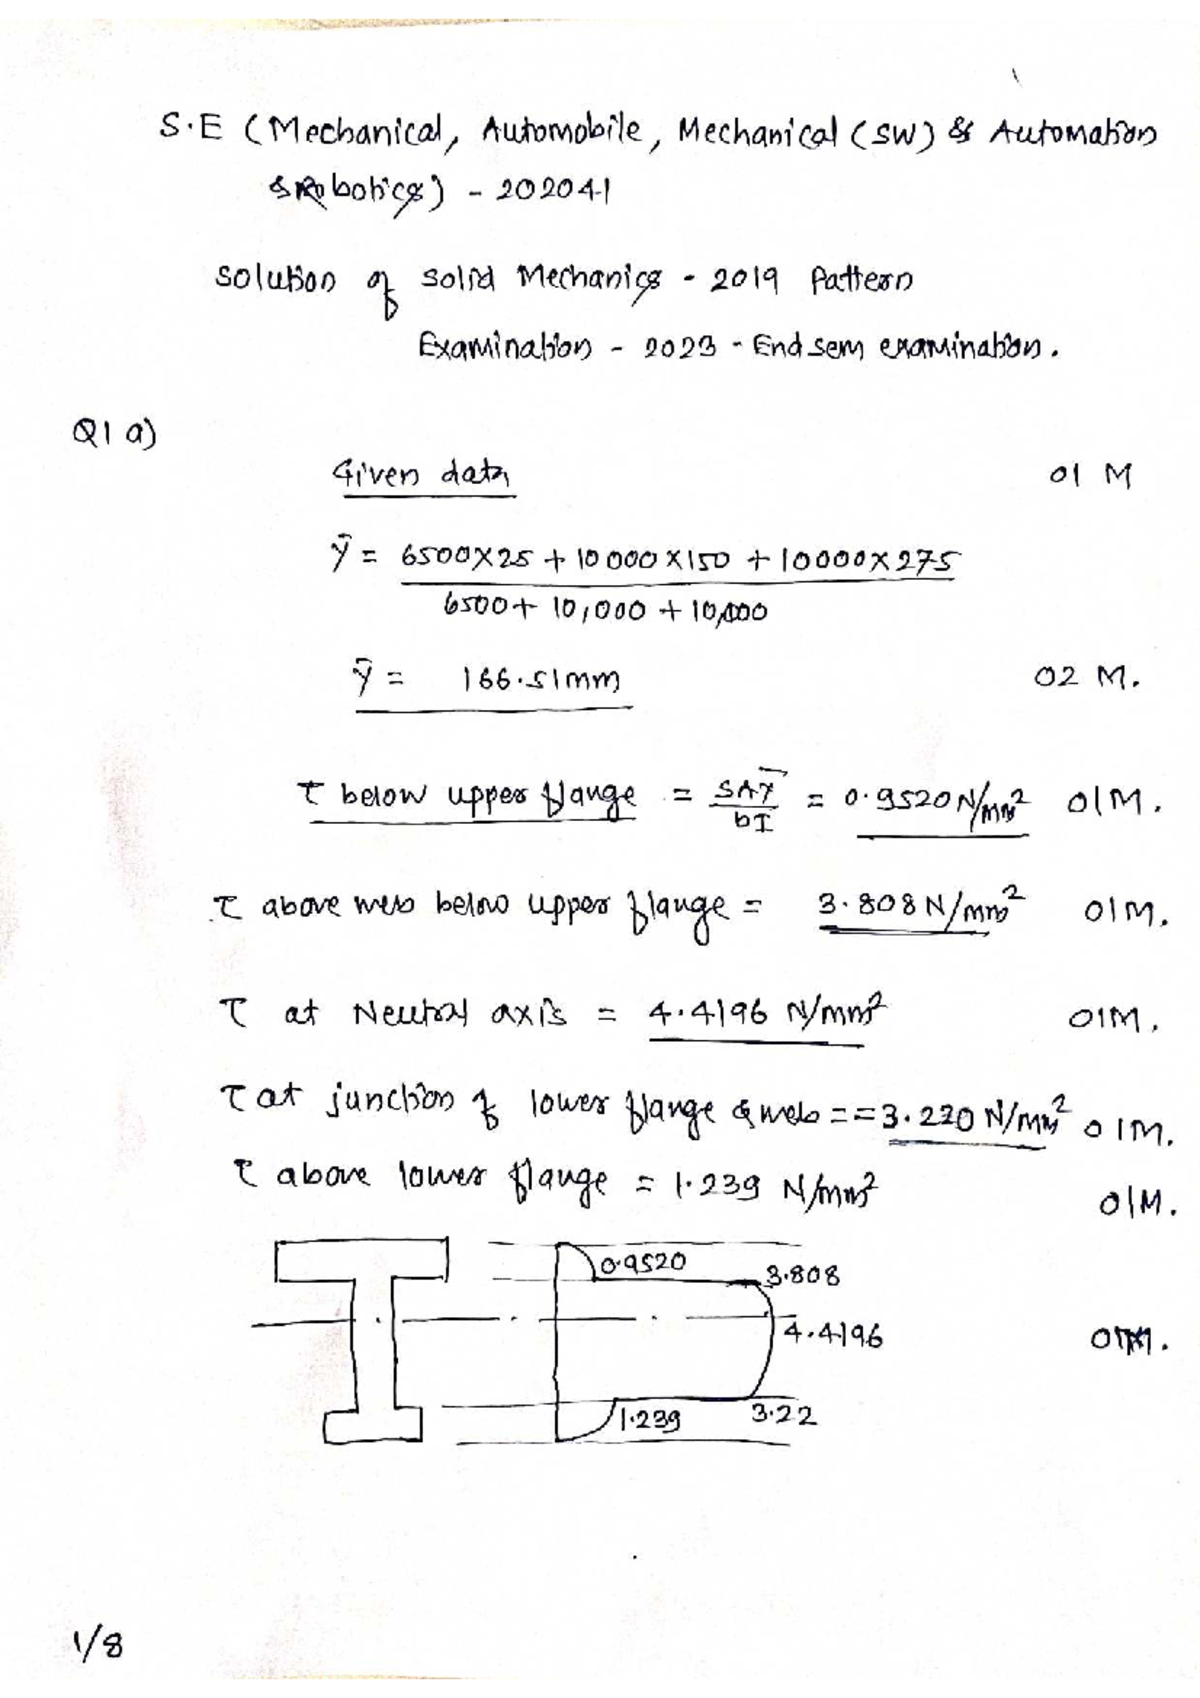 S.E (Mechanical, Automobile, Mechanical (SW) & Automation
& Robotics) - 202041
Solution of Solid Mechanics - 2019 Pattern
Examination - 2023 - End sem examination.
Q1 a)
Given data 01 M
ȳ = 6500×25 + 10000×150 + 10000×275
6500 + 10,000 + 10,000
ȳ = 166.51mm 02 M.
τ below upper flange = SAȲ / bI = 0.9520 N/mm² 01M.
τ above web below upper flange = 3.808 N/mm² 01M.
τ at Neutral axis = 4.4196 N/mm² 01M.
τ at junction of lower flange & web = = 3.220 N/mm² 01M.
τ above lower flange = 1.239 N/mm² 01M.
0.9520
3.808
4.4196 01M.
1.239 3.22
1/8